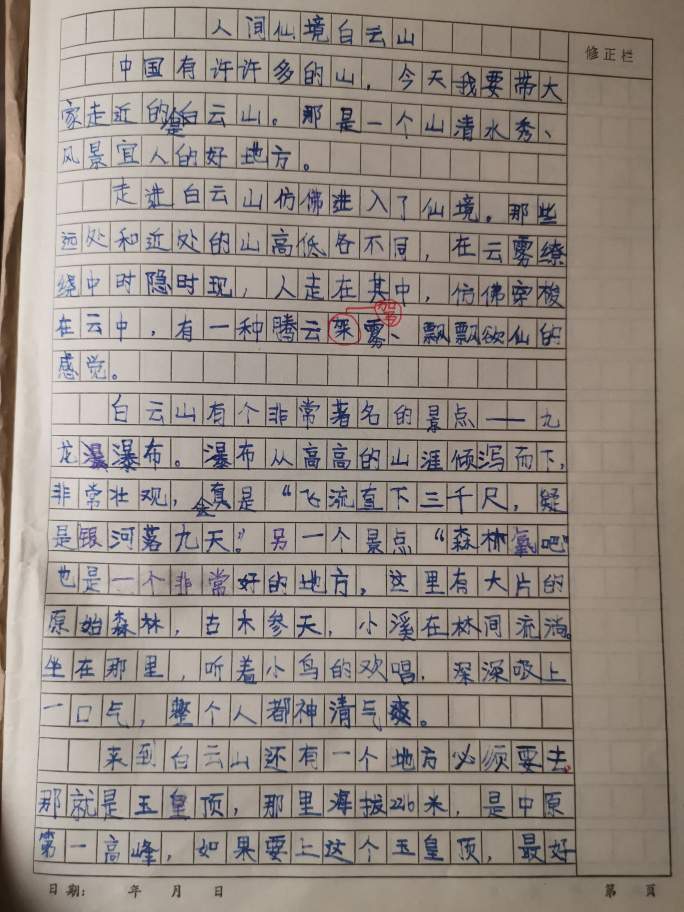 人间仙境白云山
修正栏
中国有许许多的山，今天我要带大
家走近的是白云山。那是一个山清水秀、
风景宜人的好地方。
走进白云山仿佛进入了仙境。那些
远处和近处的山高低各不同，在云雾缭
绕中时隐时现，人走在其中，仿佛穿梭
驾
在云中，有一种腾云架雾、飘飘欲仙的
感觉。
白云山有个非常著名的景点——九
龙瀑布。瀑布从高高的山涯倾泻而下，
非常壮观，真是“飞流直下三千尺，疑
是银河落九天”。另一个景点“森林氧吧”
也是一个非常好的地方，这里有大片的
原始森林，古木参天，小溪在林间流淌。
坐在那里，听着小鸟的欢唱，深深吸上
一口气，整个人都神清气爽。
来到白云山还有一个地方必须要去，
那就是玉皇顶，那里海拔2216米，是中原
第一高峰，如果要上这个玉皇顶，最好
日期： 年 月 日 第 页